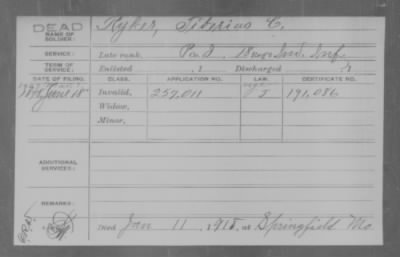 DEAD
NAME OF SOLDIER:
Ryker, Tiberius C.
SERVICE:
Late rank, Pvt
TERM OF SERVICE:
Enlisted , 1 Discharged , 1
DATE OF FILING. CLASS. APPLICATION NO. LAW. CERTIFICATE NO.
June 18 Invalid, 257,011 191,086
Widow,
Minor,
ADDITIONAL SERVICES:
REMARKS:
Died Jan 11, 1915, at Springfield Mo